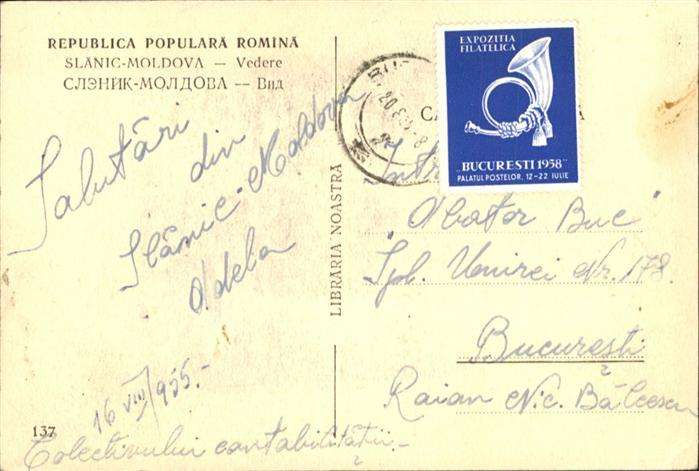 REPUBLICA POPULARĂ ROMÎNĂ
SLĂNIC-MOLDOVA — Vedere
СЛЭНИК-МОЛДОВА — Вид
Salutări
din
Slănic-Moldova
Adela
16 VIII/955.-
137
Colectivului contabilității.-
LIBRĂRIA NOASTRĂ
EXPOZIȚIA
FILATELICA
„BUCUREȘTI 1958"
PALATUL POSTELOR, 12-22 IULIE
"Abator Buc"
Spl. Unirei Nr. 178.
București
Raian N. Bălcescu